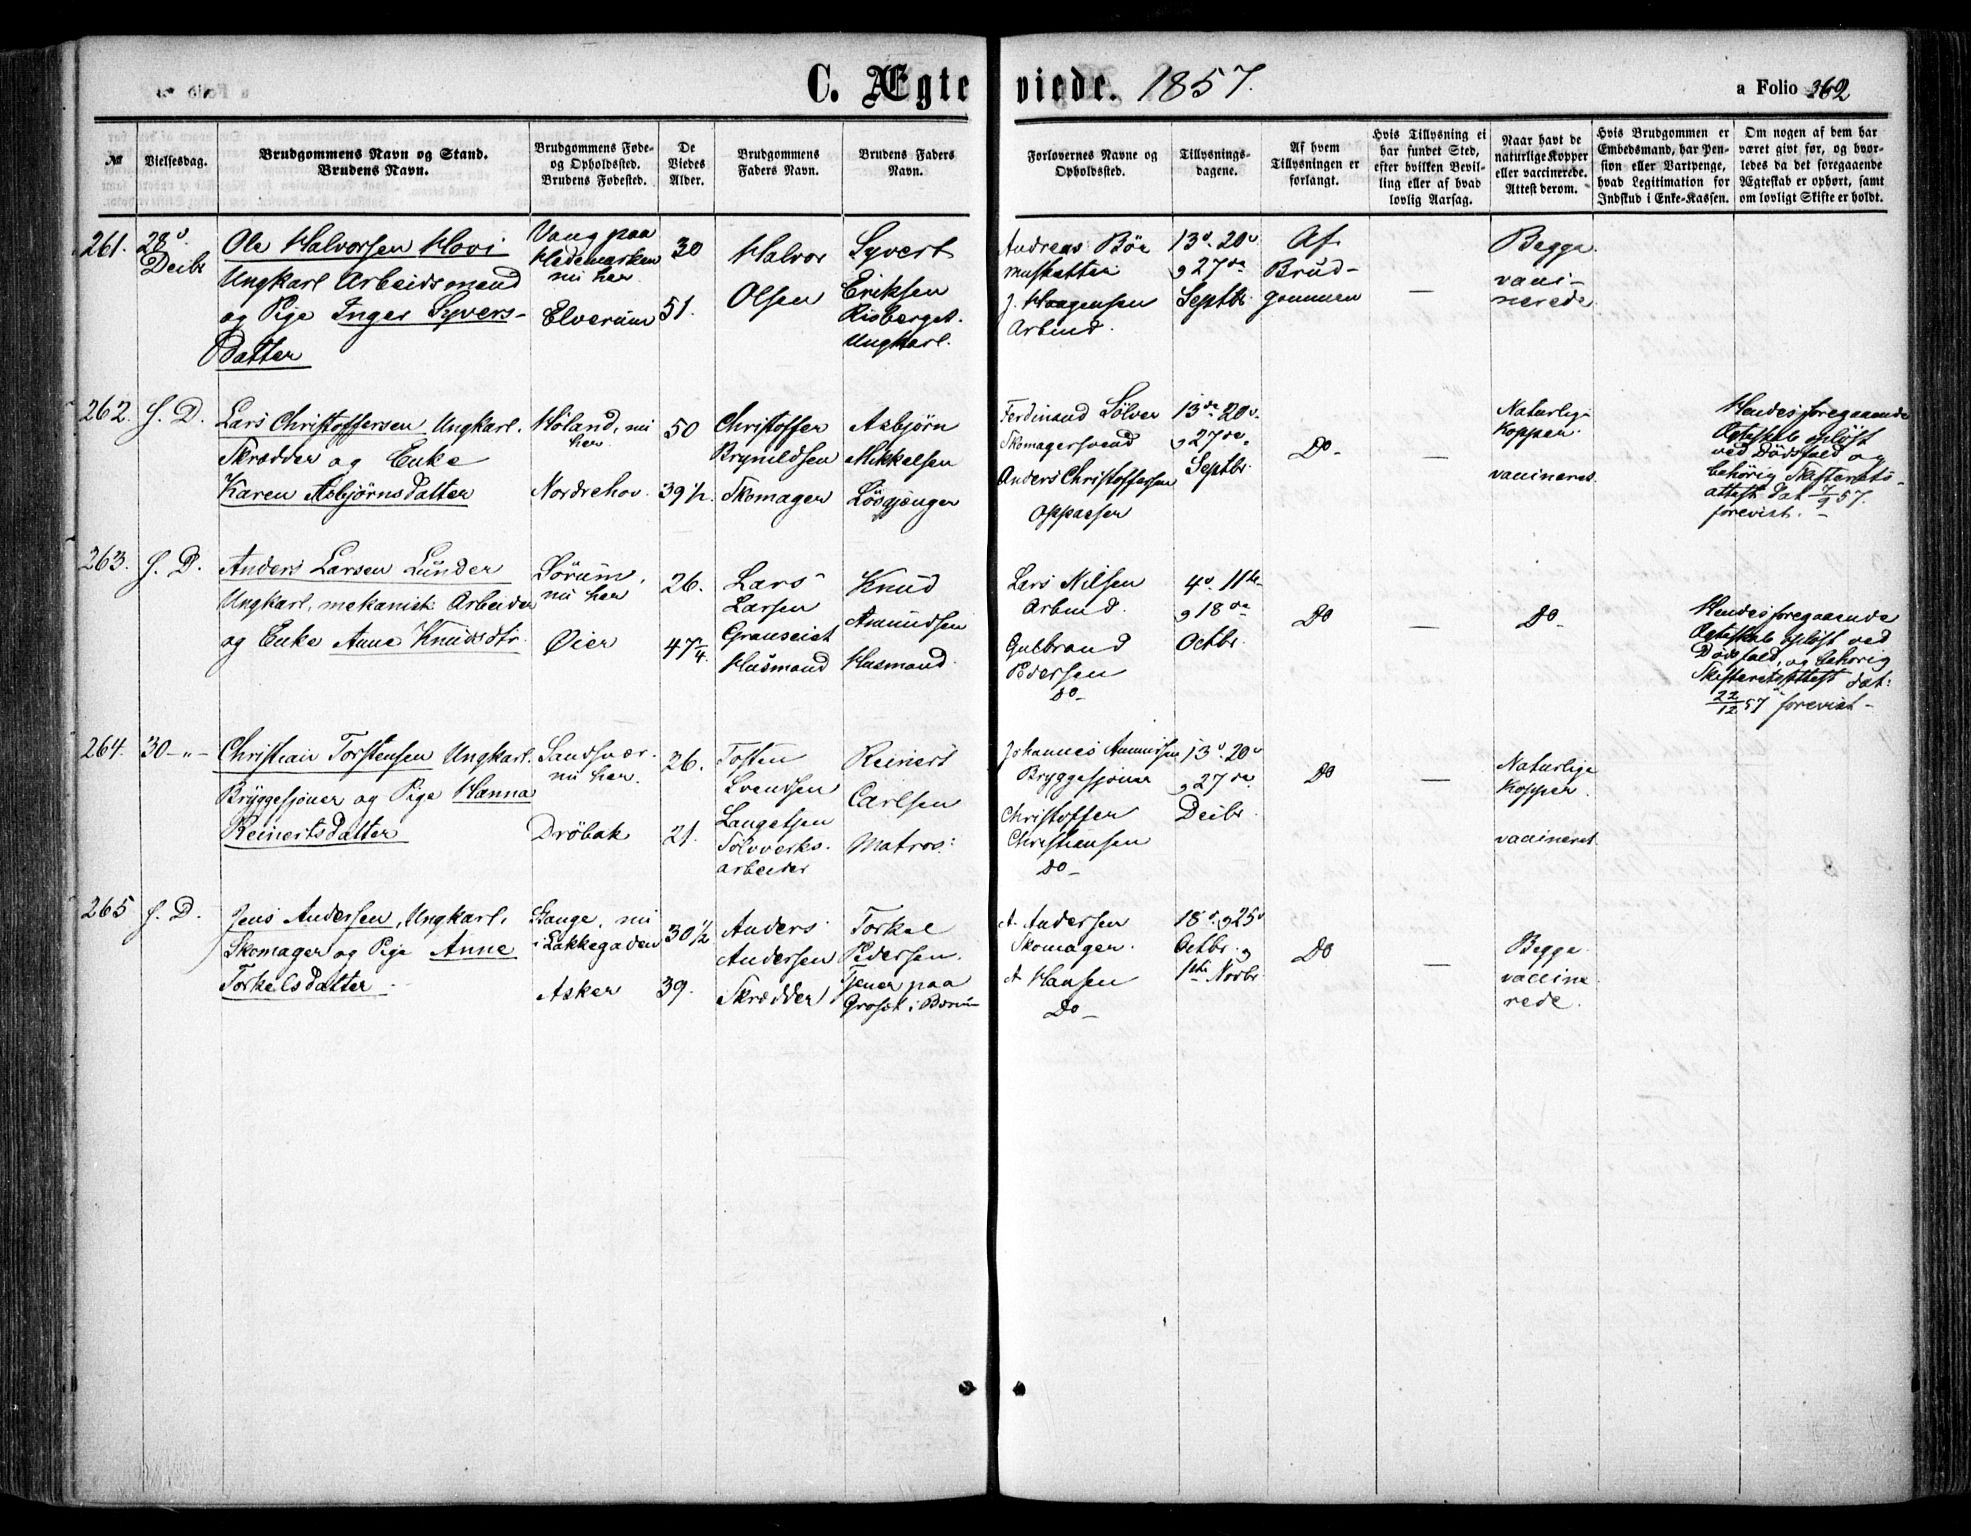 C. Ægteviede. 1857.
a Folio 362
№
Vielsesdag.
Brudgommens Navn og Stand.
Brudens Navn.
Brudgommens Føde-
og Opholdssted.
Brudens Fødested.
De
Viedes
Alder.
Brudgommens
Faders Navn.
Brudens Faders
Navn.
Forlovernes Navne og
Opholdssted.
Tillysnings-
dagene.
Af hvem
Tillysningen er
forlangt.
Hvis Tillysning ei
har fundet Sted,
efter hvilken Bevil-
ling eller af hvad
lovlig Aarsag.
Naar havt de
naturlige Kopper
eller vaccinerede.
Attest derom.
Hvis Brudgommen er
Embedsmand, har Pen-
sion eller Vartpenge,
hvad Legitimation for
Indskud i Enke-Kassen.
Om nogen af dem har
været givt før, og hvor-
ledes da det foregaaende
Ægteskab er ophørt, samt
om lovligt Skifte er holdt.
261.
28de
Decbr
Ole Halvorsen Hovi
Ungkarl Arbeidsmand
og Pige Inger Syvers-
datter
Vang paa
Hedemarken
nu her.
Elverum
30
51.
Halvor
Olsen
Syvert
Eriksen
Risberget.
Ungkarl.
Andreas Böe
J. Haagensen
Arbmd.
13de 20de
og 27de
Septbr.
Af
Brud-
gommen
—
Begge
vacci-
nerede
262.
s. D.
Lars Christoffersen Ungkarl.
Skrædder og Enke
Karen Asbjørnsdatter
Höland, nu
her.
Nordrehov.
50
39 1/2.
Christoffer
Bryneldsen
Skomager
Asbjörn
Mikkelsen
Lösgjenger
Ferdinand Sölver
Skomagersvend
Anders Christoffersen
Oppasser
13de 20de
og 27de
Septbr.
Do-
—
Naturlige
Kopper.
vaccineret.
Hendes foregaaende
Ægteskab oplöst
ved Dödsfald og
behörig Skifterets-
attest dat 7/9 57.
forevist. -
263.
s. D.
Anders Larsen Lunder
Ungkarl, mekanisk Arbeider
og Enke Anne Knudsdtr.
Sörum,
nu her
Øier
26.
47 /4.
Lars
Larsen
Granseiet
Husmand
Knud
Amundsen
Husmand.
Lars Nilsen
Arbmd.
Gulbrand
Pedersen
Do-
4de 11te
og 18de
Octbr.
Do
—
Do-
Hendes foregaaende
Ægteskab oplöst ved
Dödsfald, og behörig
Skifteretsattest dat:
22/12 57 forevist-
264.
30-"-
Christian Torstensen Ungkarl.
Bryggesjouer og Pige Hanna
Reinertsdatter
Sandsvær.
nu her.
Dröbak
26.
21.
Tosten
Svendsen
Langetsen
Sölvverks-
arbeider
Reinert
Carlsen
Matros:
Johannes Amundsen
Bryggesjouer
Christoffer
Christiansen
Do-
13de 20de
og 27de
Decbr.
Do
—
Naturlige
Kopper.
vaccineret
265
s. D.
Jens Andersen, Ungkarl,
Skomager og Pige Anne
Torkelsdatter
Stange, nu
i Lakkegaden
Asker
30 1/2
39.
Anders
Andersen
Skrædder
Torkel
Pedersen.
Tjener paa
i Bærum
A. Andersen
Skomager.
A Hansen
Do-
18de og 25de
Octbr. og
1ste Novbr
Do
—
Begge
vaccine
rede.